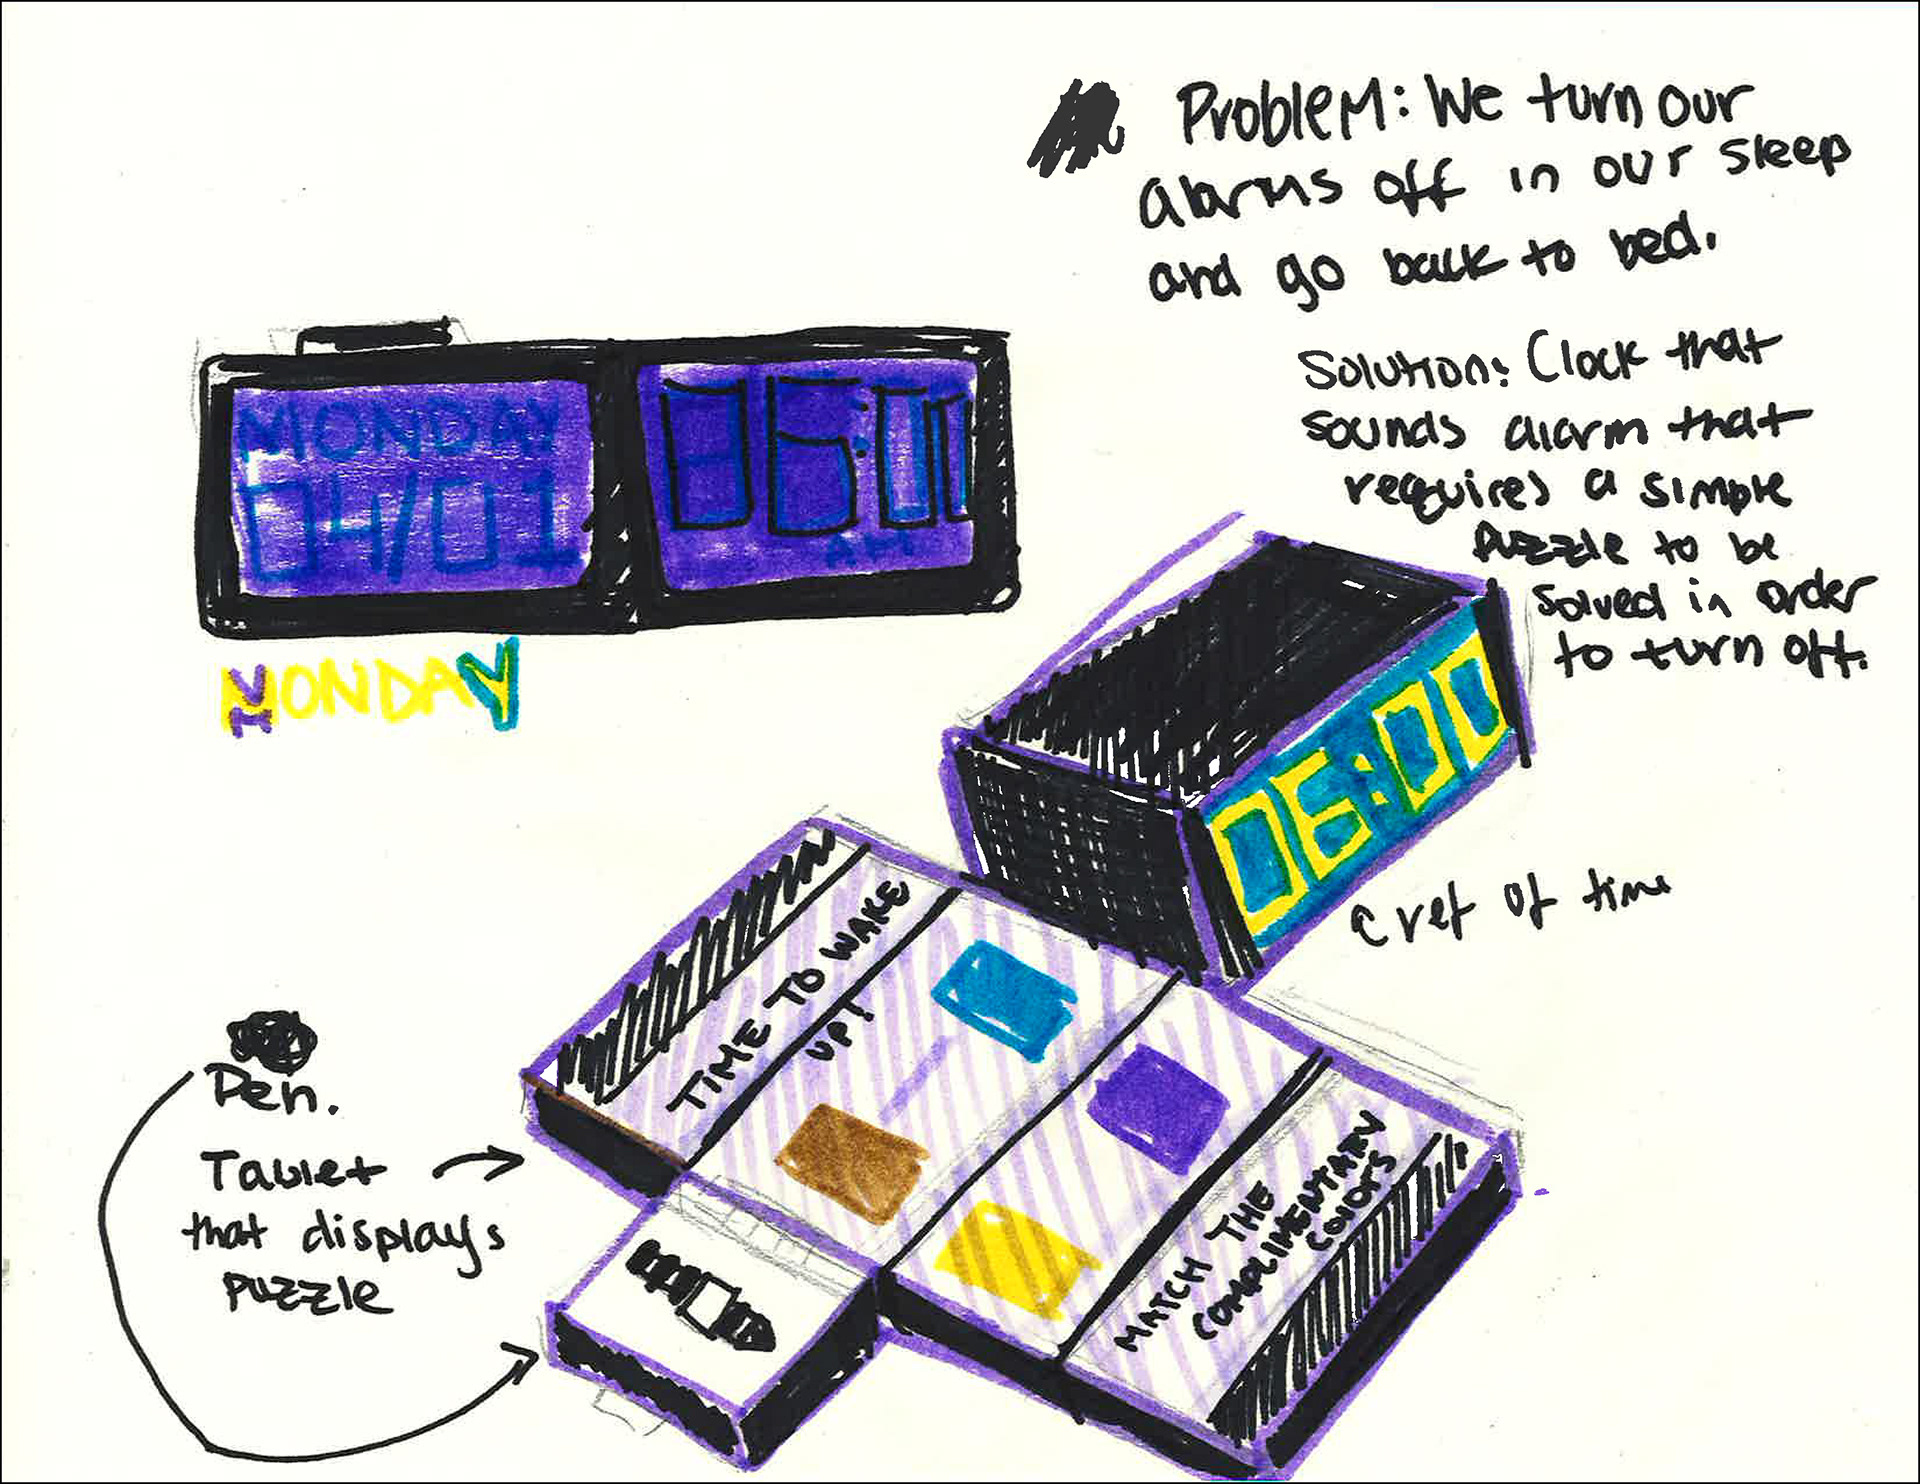 Problem: We turn our
alarms off in our sleep
and go back to bed.
Solution: Clock that
sounds alarm that
requires a simple
puzzle to be
solved in order
to turn off.
MONDAY
04/01
06:00
AM
MONDAY
06:00
ref of time
TIME TO WAKE
UP!
MATCH THE
COMPLIMENTARY
COLORS
Pen.
Tablet
that displays
puzzle